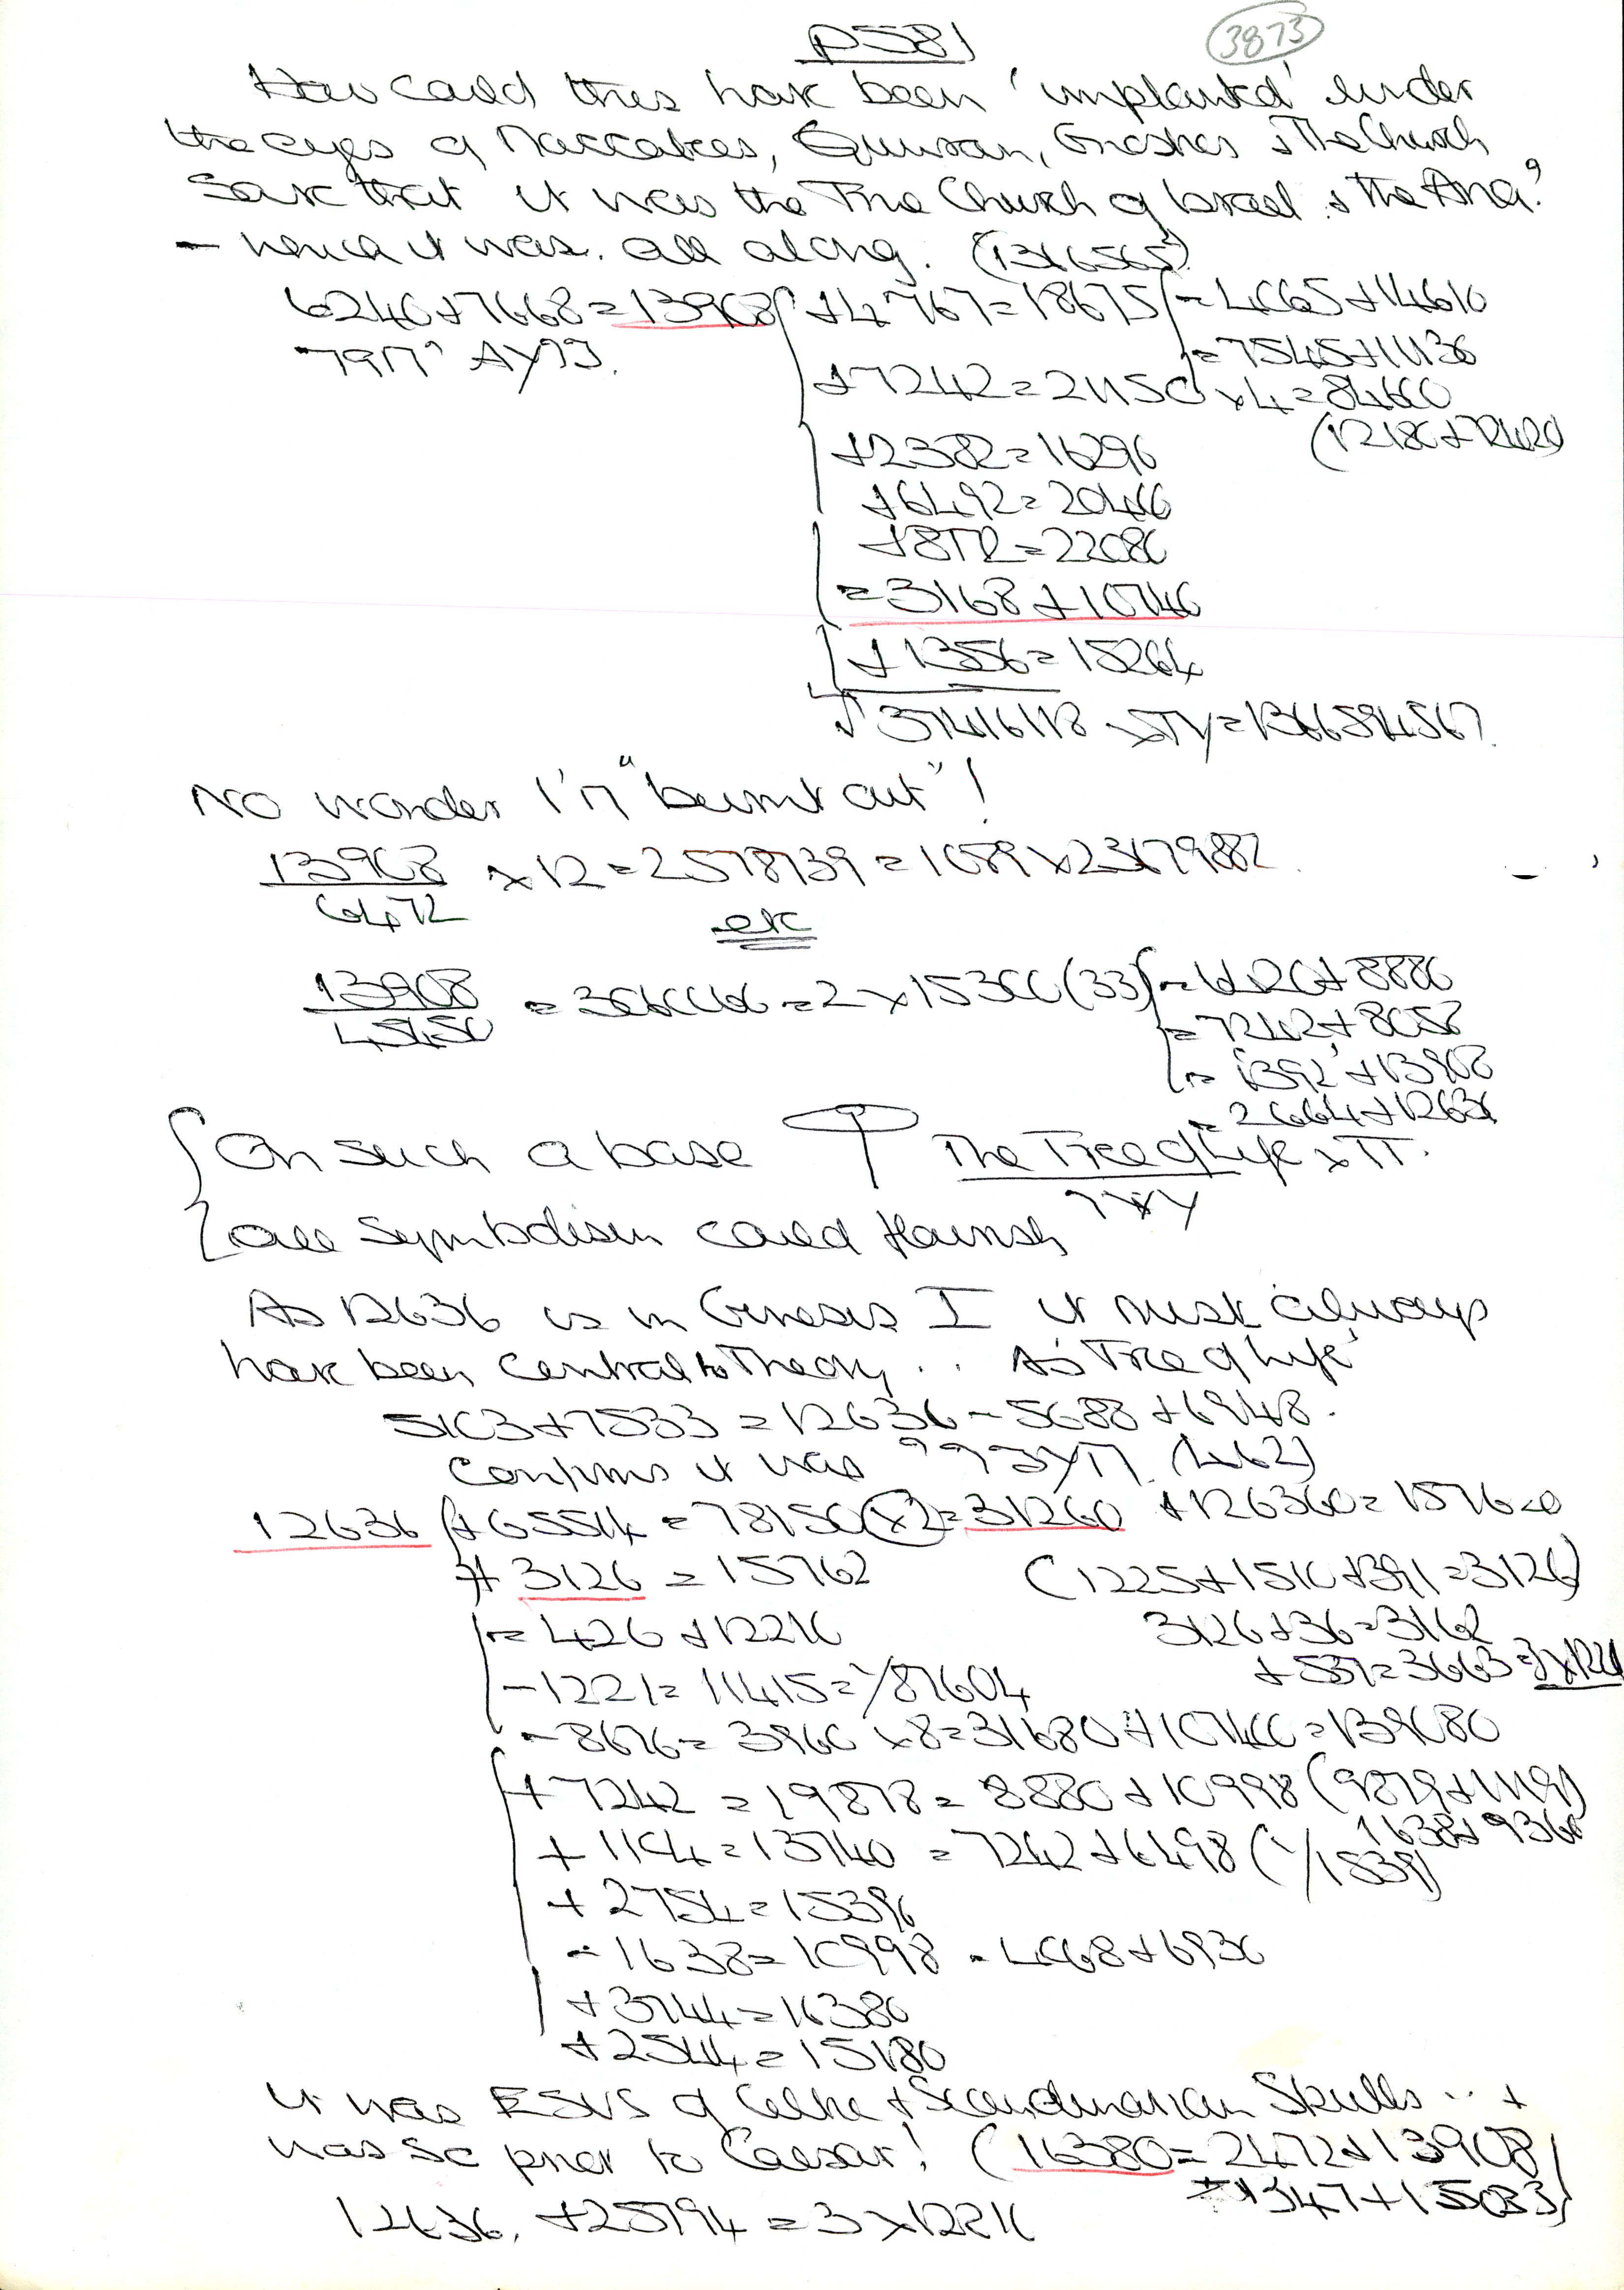 P581
3873
How could this have been 'implanted' under
the eyes of Maccabees, Qumran, Gnostics & The Church
save that it was the True Church of Israel & the
- hence it was all along. (1316565)
6240+7668=13908 +4767=18675 =4065+14610
=7545+11130
+7242=21150 x4=84600
(12180+72420)
+2382=16290
+6492=20400
+8172=22080
=3168+10740
+1356=15264
No wonder I'm "burnt out"!
13908/6472 x12=2578739=1089x23679882
etc
13908/45450 =306006=2x15300(33) =6420+8880
=7242+8058
=1392+13908
=2664+12636
On such a base The Tree of Life x TT.
all symbolism could flourish
As 12636 is in Genesis I it must always
have been central to Theory .. As 'Tree of Life'
5103+7533=12636=5688+6948.
confirms it was (462)
12636 +65514=78150(x2)=31260 +126360=157620
+3126=15762 (1225+1510+391=3126)
=426+12210 3126+36=3162
-1221=11415=1/87604 +537=3663=3x1221
-8676=3960 x8=31680+107400=139080
+7242=19878=8880+10998(9879+1119)
1638+9360
+1104=13740=7242+6498(1/1539)
+2754=15390
-1638=10998=4068+6930
+3744=16380
+2544=15180
It was ESVS of Celtic & Scandinavian Skulls .. &
was so prior to Caesar! (16380=2472+13908
=1347+15033)
12636. +25194=3x12210